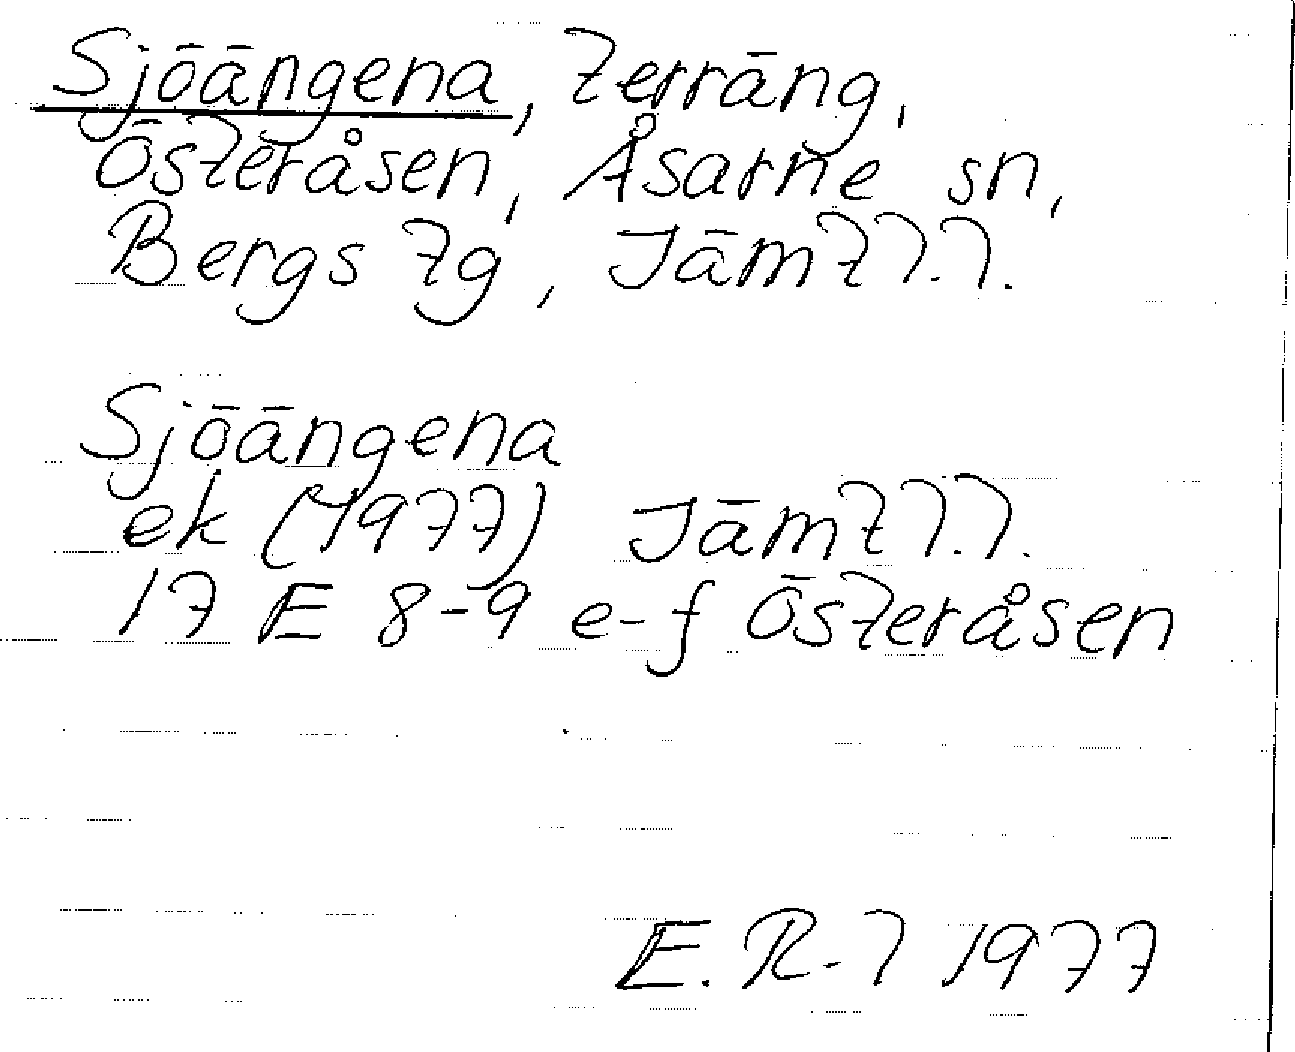 Sjöängena, terräng,
Österåsen, Åsarne sn,
Bergs tg, Jämtl.l.
Sjöängena
ek (1977) Jämtl.l.
17 E 8-9 e-f Österåsen
E. R-l 1977